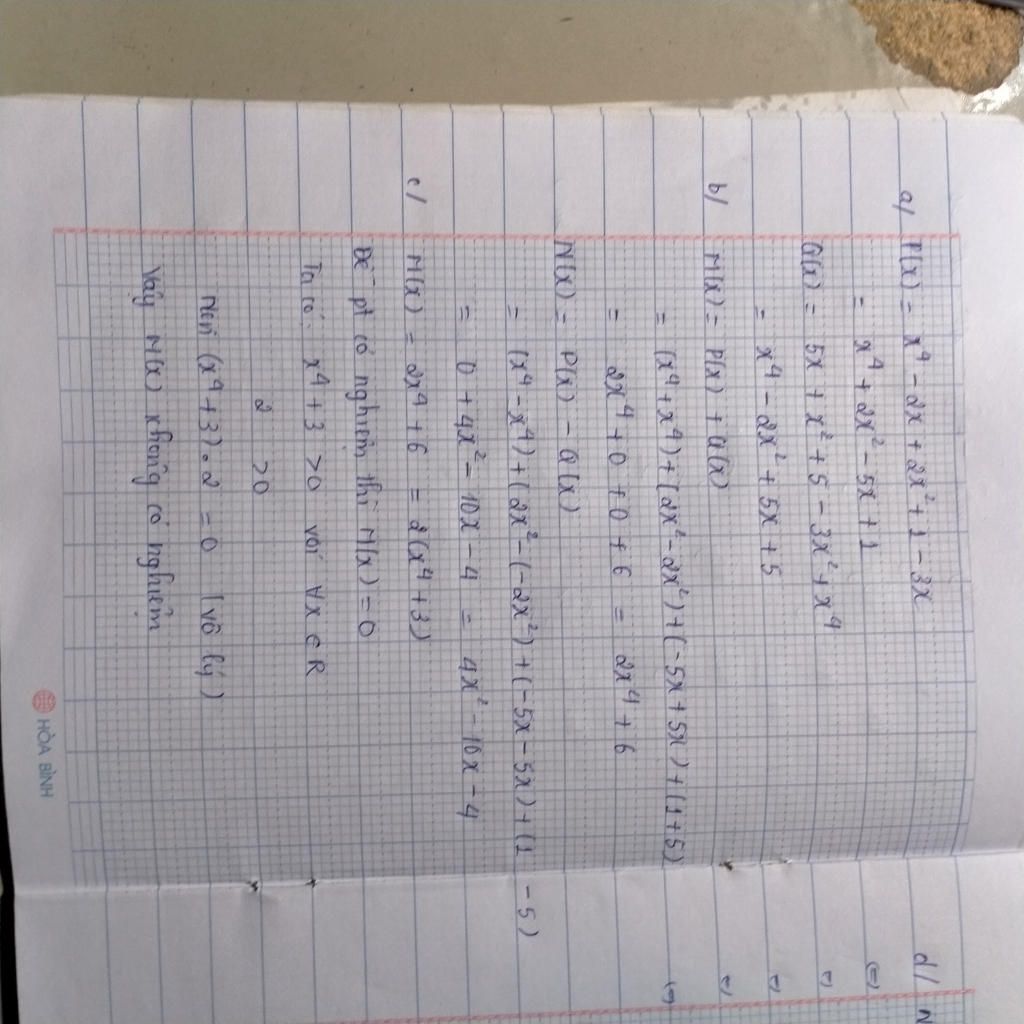 a/ P(x) = x⁴ - 2x + 2x² + 1 - 3x
= x⁴ + 2x² - 5x + 1
Q(x) = 5x + x² + 5 - 3x² + x⁴
= x⁴ - 2x² + 5x + 5
b/ M(x) = P(x) + Q(x)
= (x⁴ + x⁴) + (2x² - 2x²) + (-5x + 5x) + (1 + 5)
= 2x⁴ + 0 + 0 + 6 = 2x⁴ + 6
N(x) = P(x) - Q(x)
= (x⁴ - x⁴) + (2x² - (-2x²) + (-5x - 5x) + (1 - 5)
= 0 + 4x² - 10x - 4 = 4x² - 10x - 4
c/ M(x) = 2x⁴ + 6 = 2(x⁴ + 3)
Để pt có nghiệm thì M(x) = 0
Ta có: x⁴ + 3 > 0 với ∀x ∈ R
2 > 0
Nên (x⁴ + 3) . 2 = 0 (vô lý)
Vậy M(x) không có nghiệm
d/ N
(=)
HÒA BÌNH